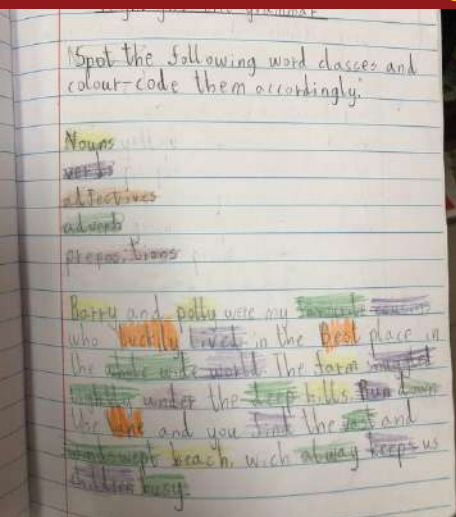 Spot the following word classes and
colour-code them accordingly:
Nouns
verbs
adjectives
adverb
prepositions
Barry and polly were my favourite cousins
who luckily lived in the best place in
the whole wide world. The farm snuggled
under the deep hills. Run down
the and you find the vast and
windswept beach, wich alway keeps us
children busy.